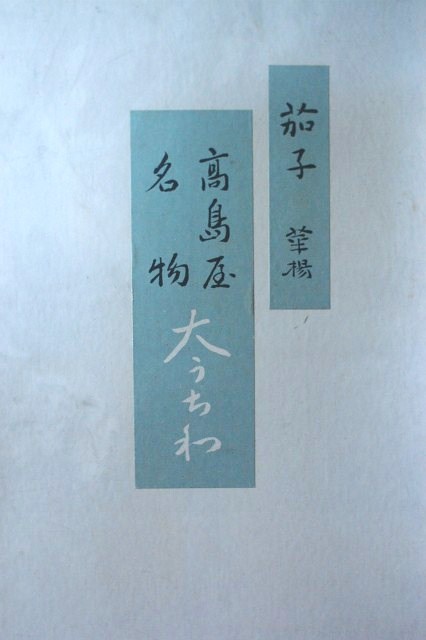 茄子 華楊
高島屋
名物
大うちわ